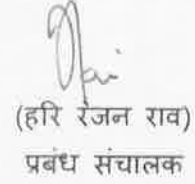 (हरि रंजन राव)
प्रबंध संचालक